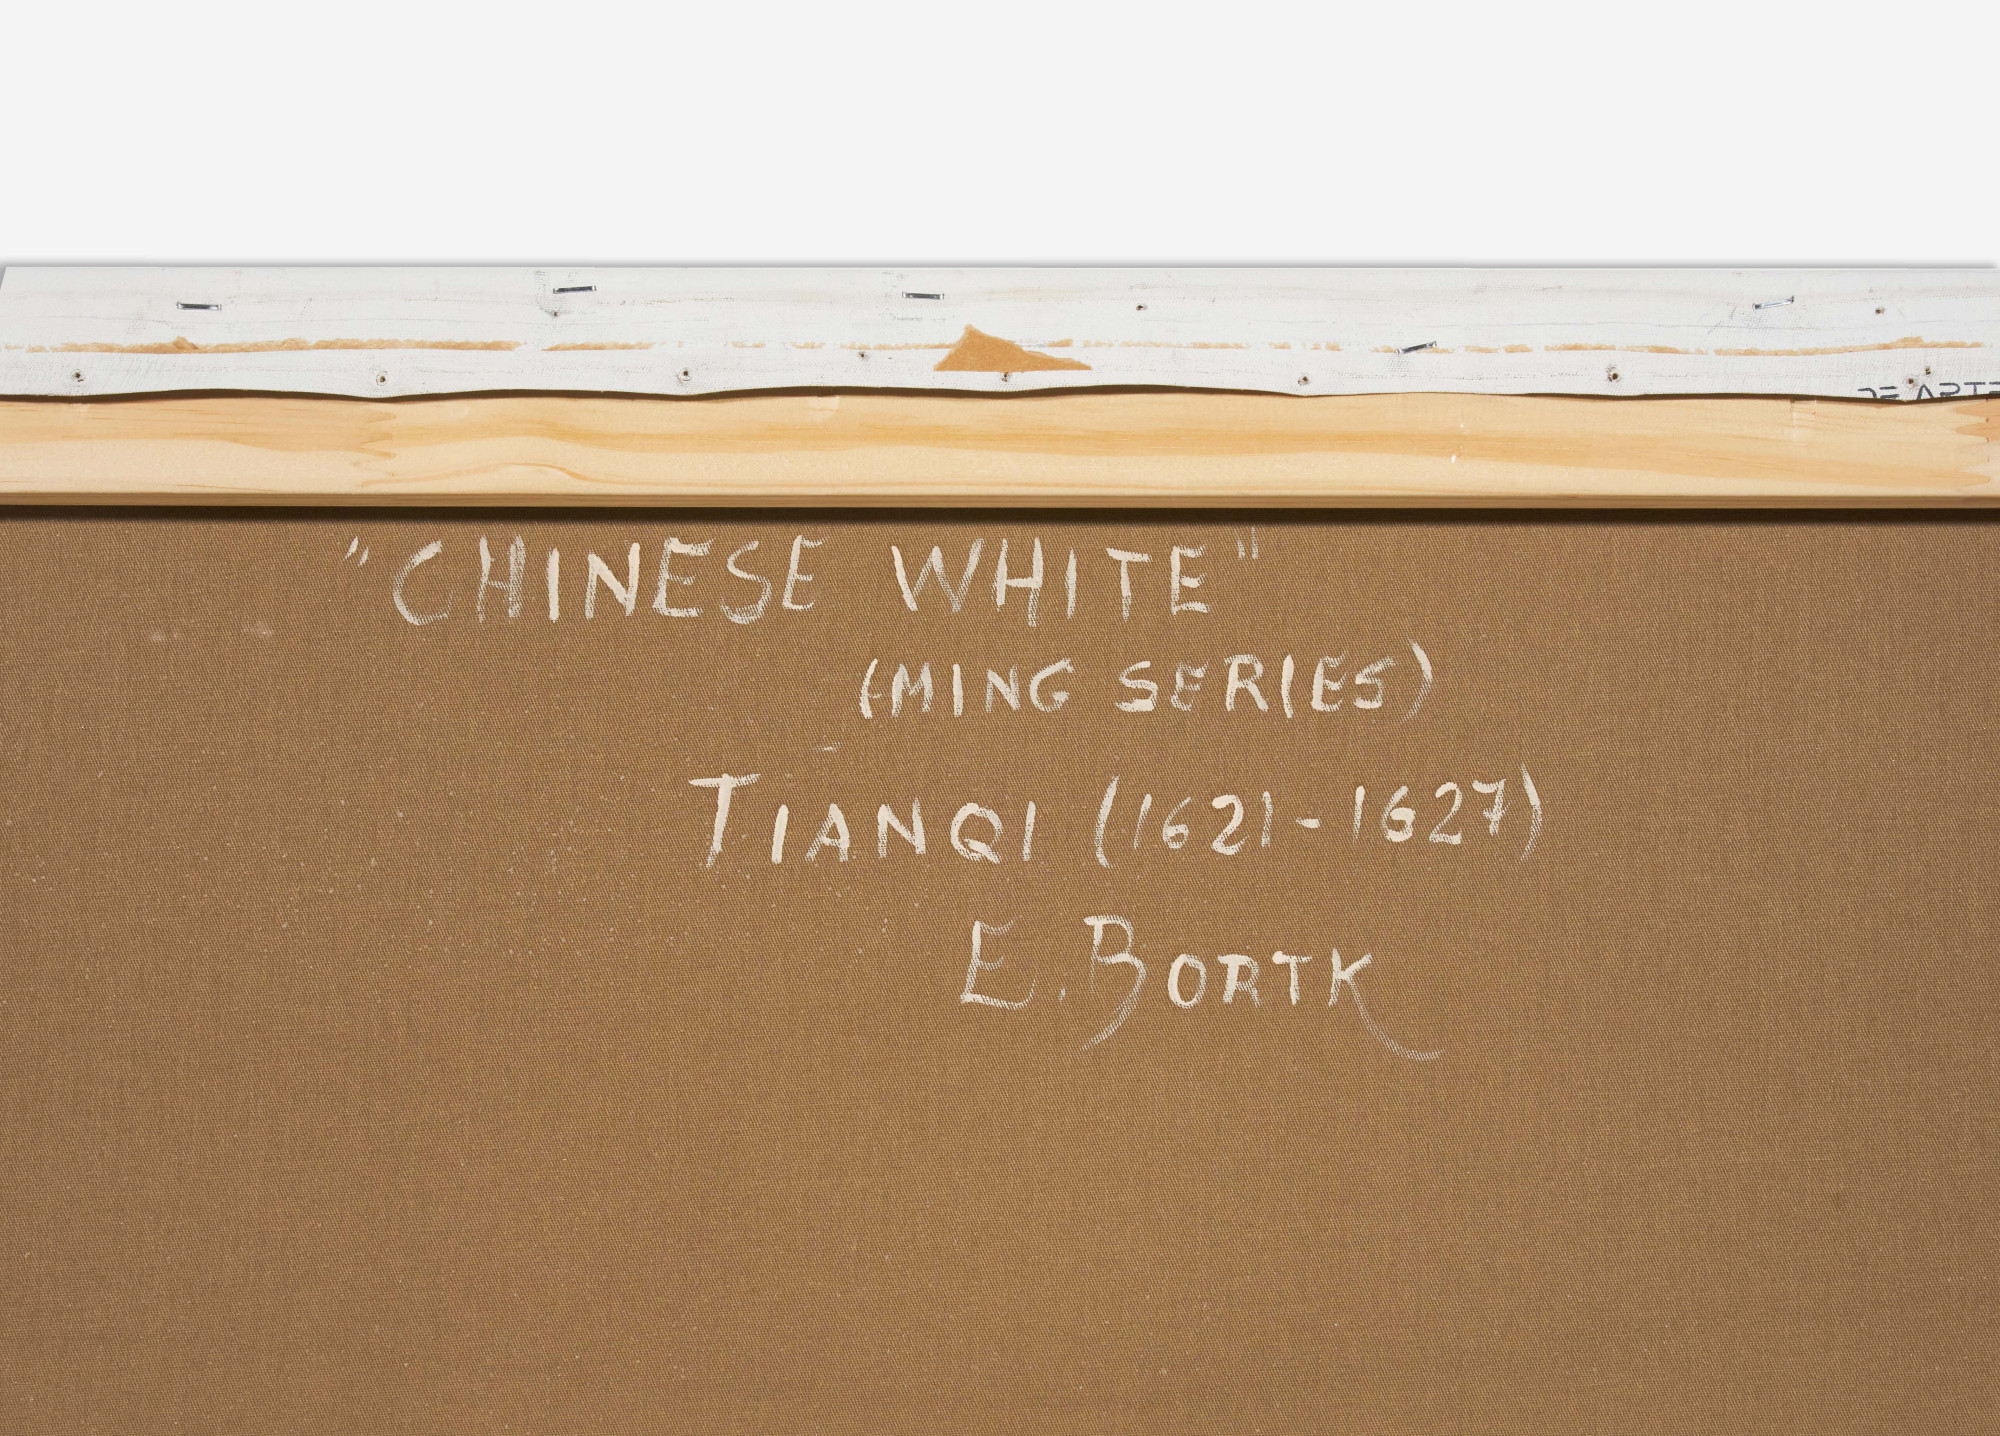 DE ARTE
"CHINESE WHITE"
(MING SERIES)
TIANQI (1621-1627)
E. BORTK